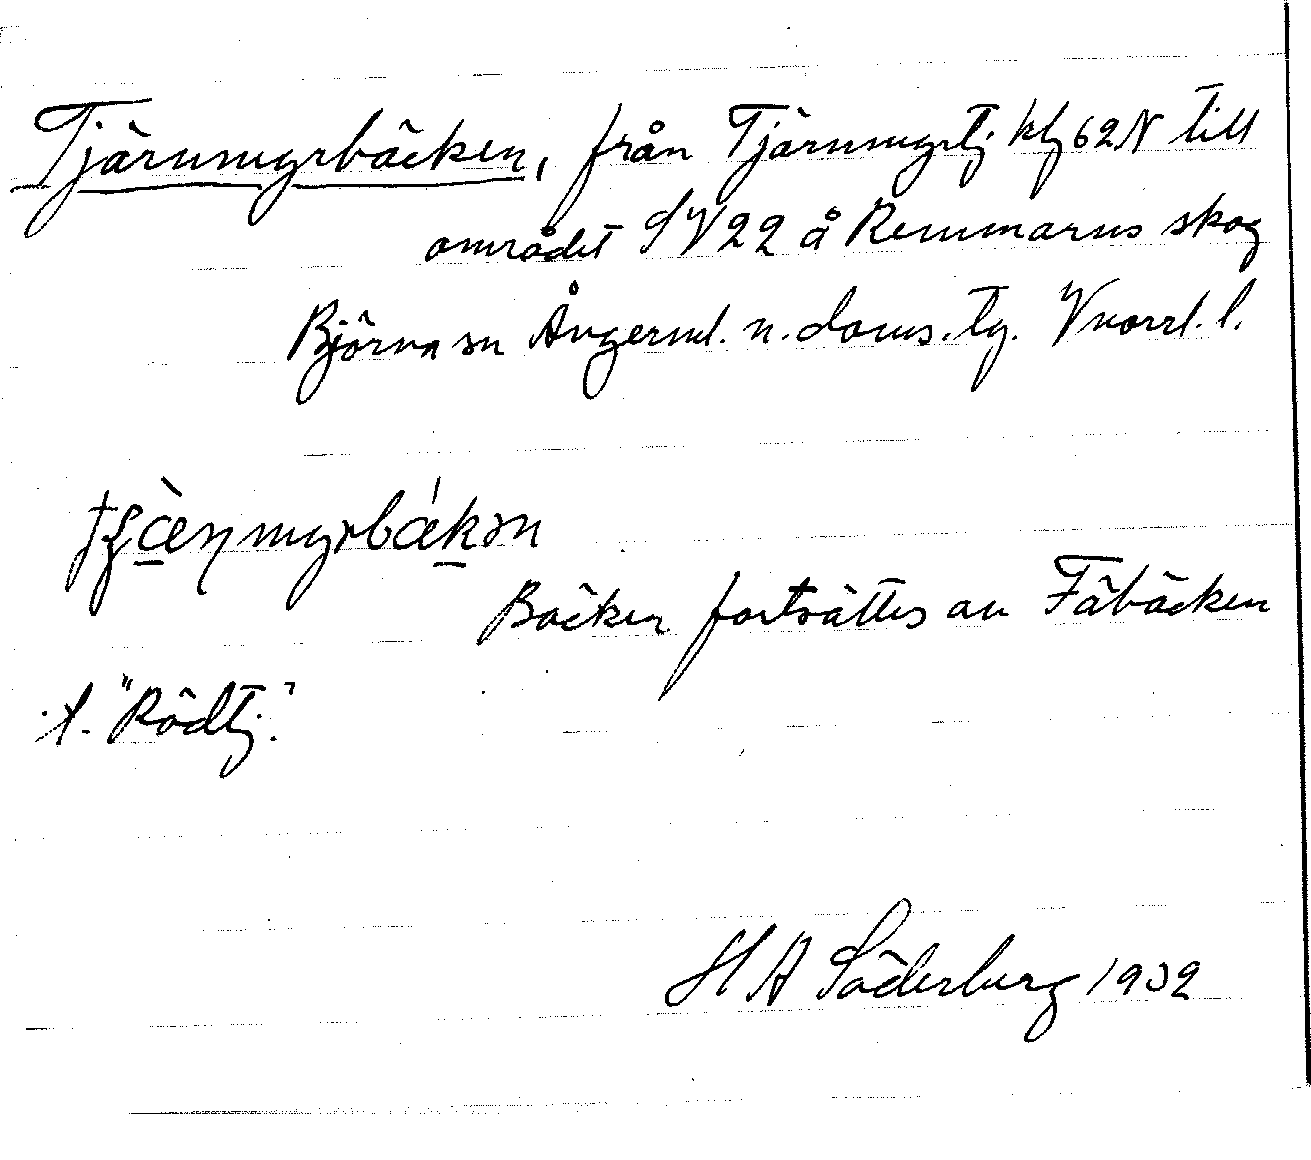 Tjärnmyrbäcken, från Tjärnmyrtj klj 62N till
området SV22 å Remmarns skog
Björna sn Ångerml. n. doms. tg. Vnorrl. l.
Bäcken fortsättes av Fäbäcken
t. "Rödtj."
H A Söderberg 1932